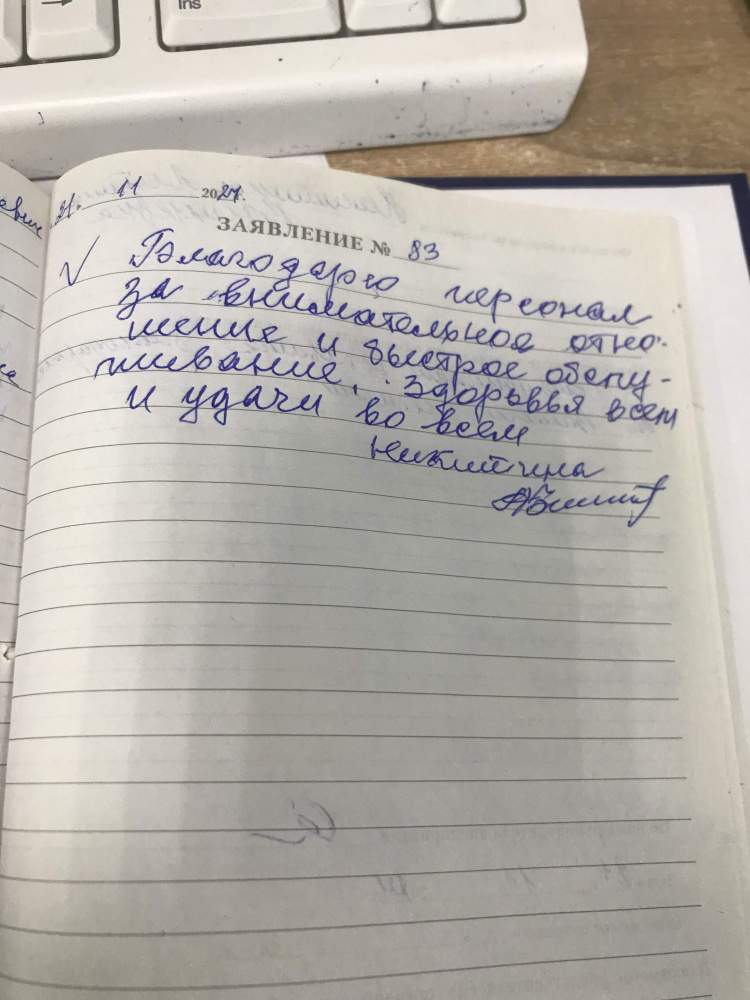 Ins
21. 11 2024г.
ЗАЯВЛЕНИЕ № 83
√ Благодарю персонал
за внимательное отно-
шение и быстрое обслу-
живание. Здоровья всем
и удачи во всем
Никитина